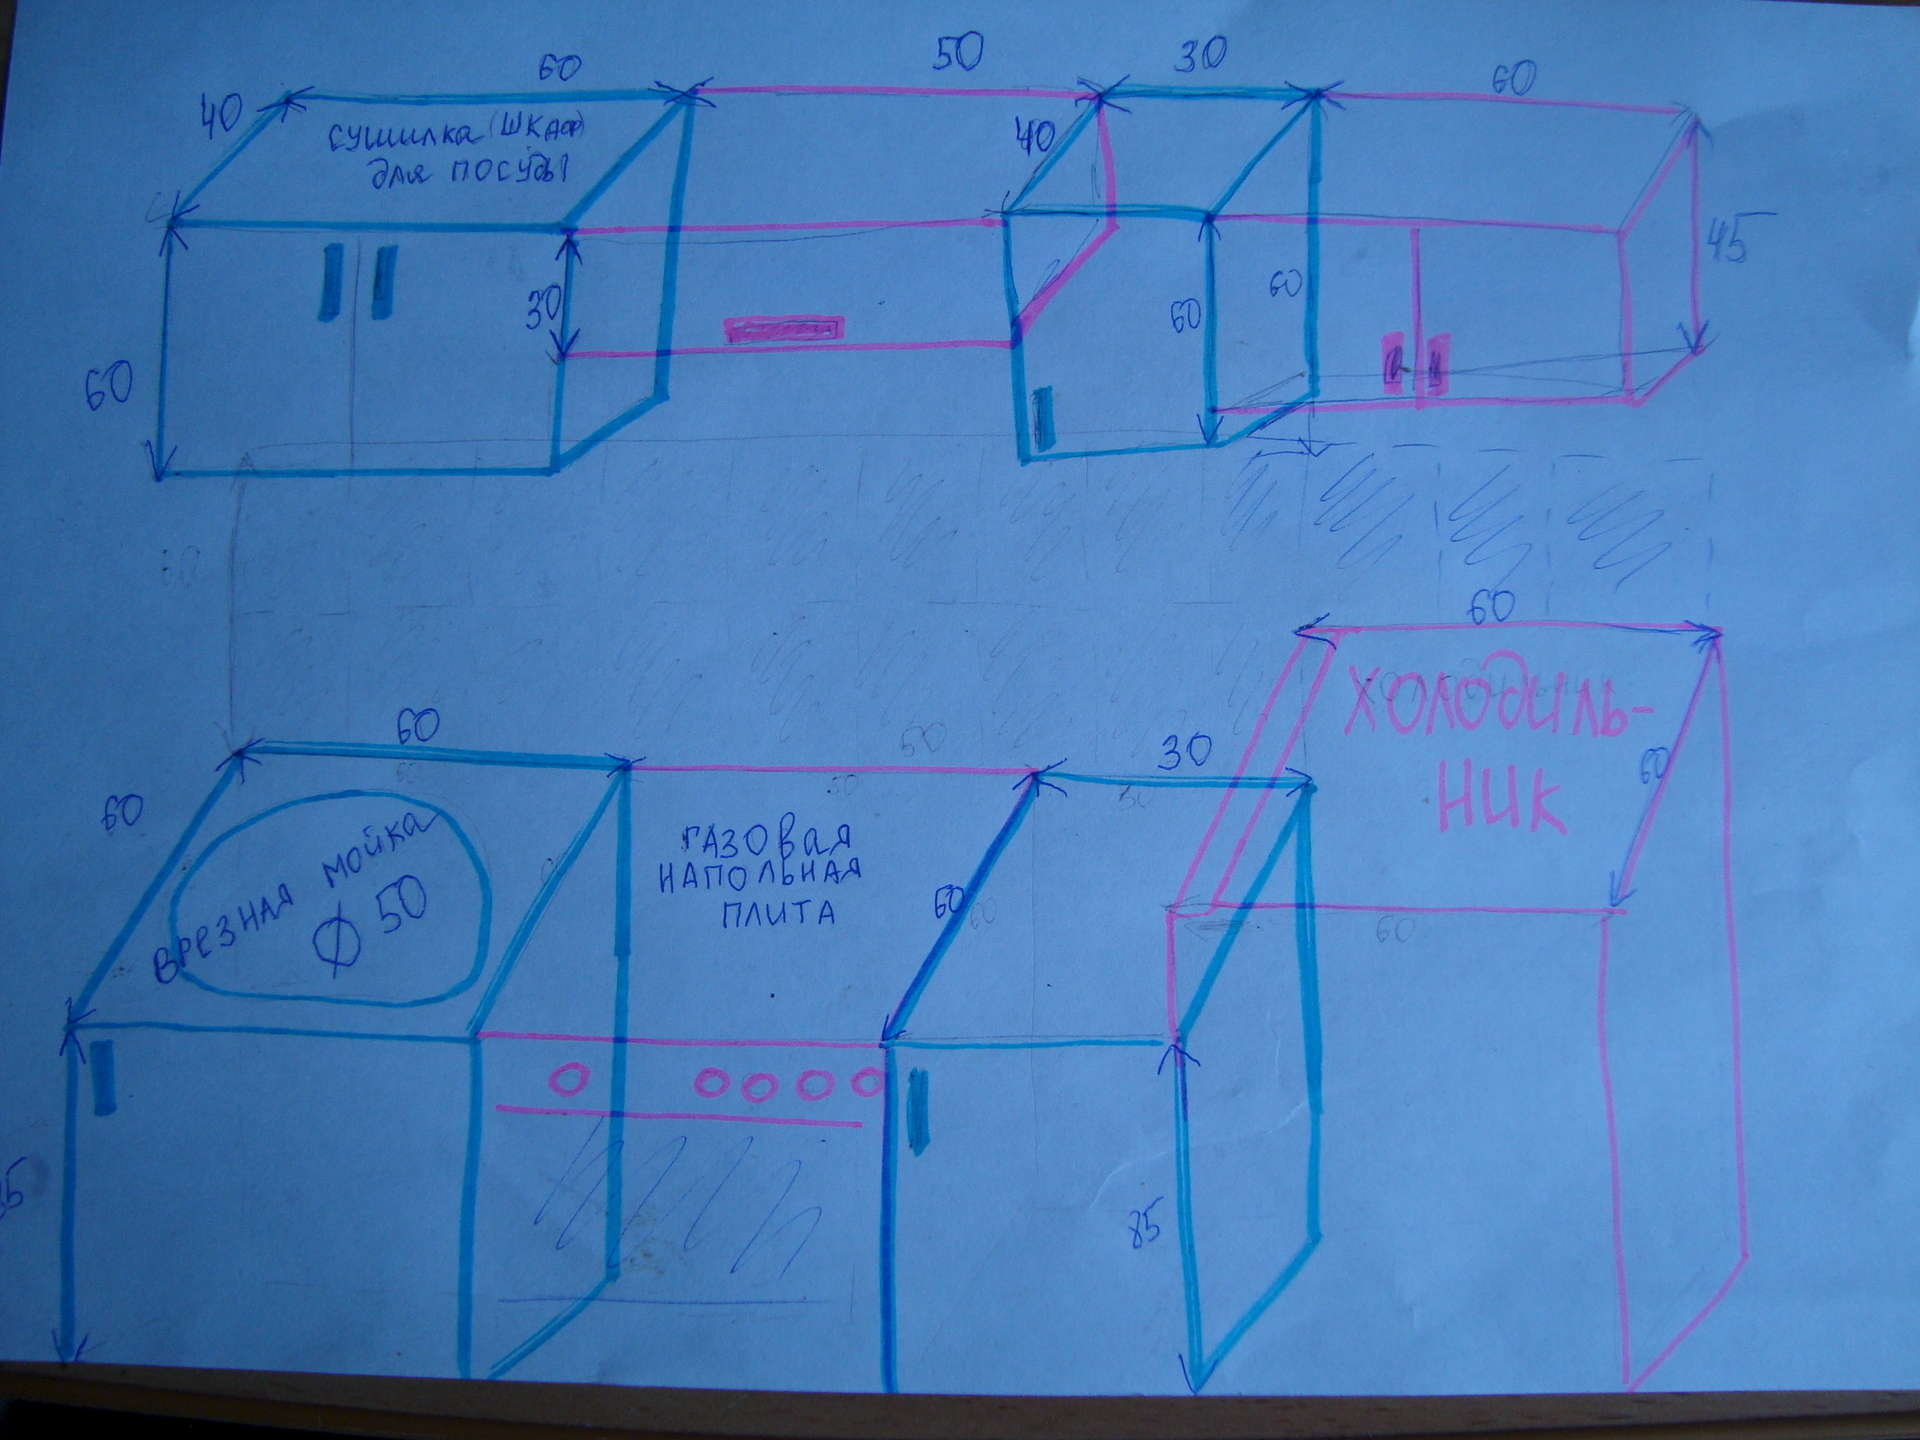 60
50
30
60
40
СУШИЛКА (ШКАФ)
ДЛЯ ПОСУДЫ
40
45
30
60
60
60
60
60
50
30
ХОЛОДИЛЬ-
НИК
60
60
ВРЕЗНАЯ МОЙКА
Ø 50
ГАЗОВАЯ
НАПОЛЬНАЯ
ПЛИТА
60
60
60
85